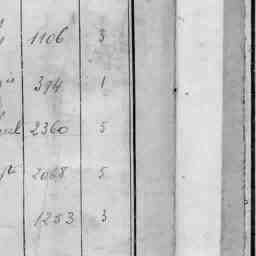 1106 3
394 1
2360 5
2068 5
1253 3